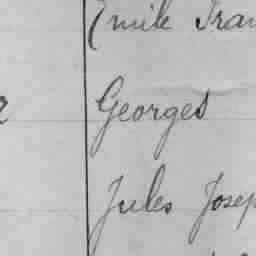 Emile Fran
Georges
Jules Josep